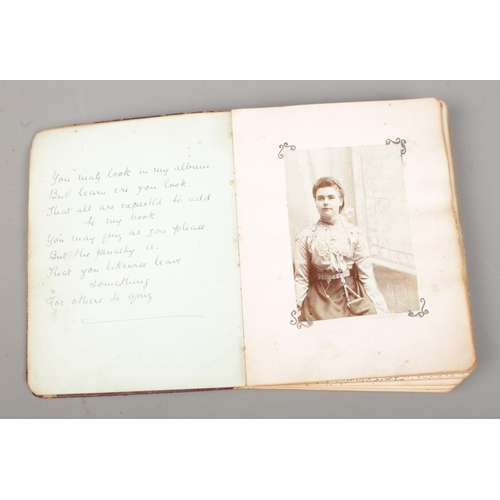 You may look in my album
But learn ere you look
That all are expected to add
to my book
You may quiz as you please
But the penalty is.
That you likewise leave
something
For others to quiz